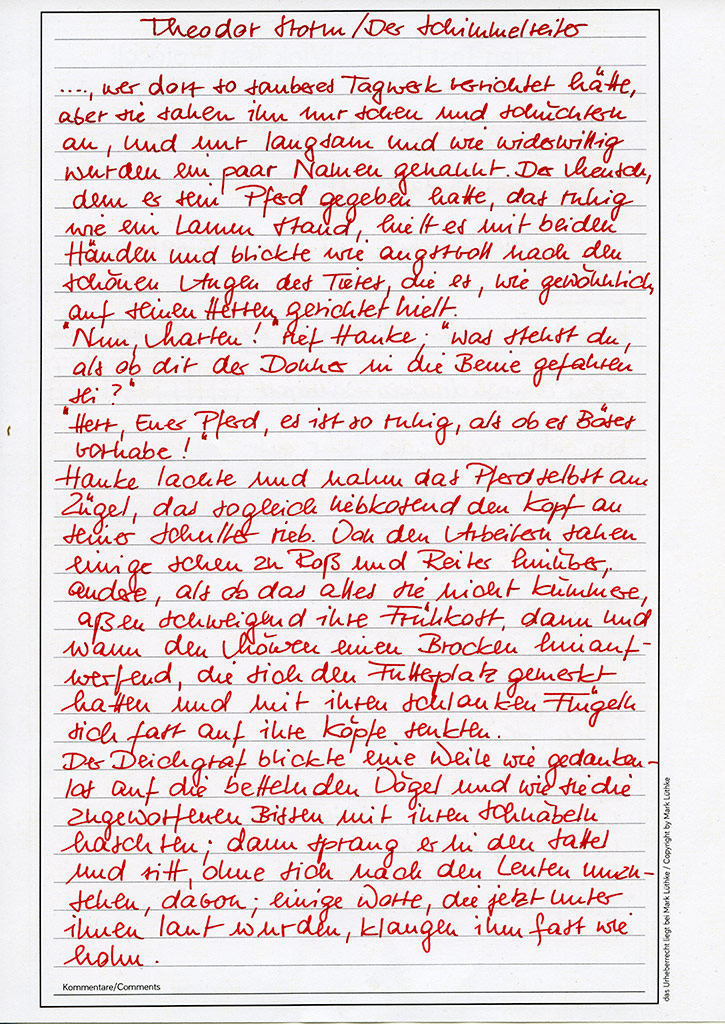 Theodor Storm / Der Schimmelreiter
...., wer dort so sauberes Tagwerk verrichtet hätte,
aber sie sahen ihn nur scheu und schüchtern
an, und nur langsam und wie widerwillig
wurden ein paar Namen genannt. Der Mensch,
dem er sein Pferd gegeben hatte, das ruhig
wie ein Lamm stand, hielt es mit beiden
Händen und blickte wie angstvoll nach den
schönen Augen des Tieres, die es, wie gewöhnlich,
auf seinen Herren gerichtet hielt.
"Nun, Marten!" rief Hauke; "was stehst du,
als ob dir der Donner in die Beine gefahren
sei?"
"Herr, Euer Pferd, es ist so ruhig, als ob es Böses
vorhabe!"
Hauke lachte und nahm das Pferd selbst am
Zügel, das sogleich liebkosend den Kopf an
seiner Schulter rieb. Von den Arbeitern sahen
einige scheu zu Roß und Reiter hinüber,
andere, als ob das alles sie nicht kümmere,
aßen schweigend ihre Frühkost, dann und
wann den Möwen einen Brocken hinauf-
werfend, die sich den Futterplatz gemerkt
hatten und mit ihren schlanken Flügeln
sich fast auf ihre Köpfe senkten.
Der Deichgraf blickte eine Weile wie gedanken-
los auf die bettelnden Vögel und wie sie die
zugeworfenen Bissen mit ihren Schnäbeln
haschten; dann sprang er in den Sattel
und ritt, ohne sich nach den Leuten umzu-
sehen, davon; einige Worte, die jetzt unter
ihnen laut wurden, klangen ihm fast wie
Hohn.
Kommentare/Comments
das Urheberrecht liegt bei Mark Lüthke / Copyright by Mark Lüthke